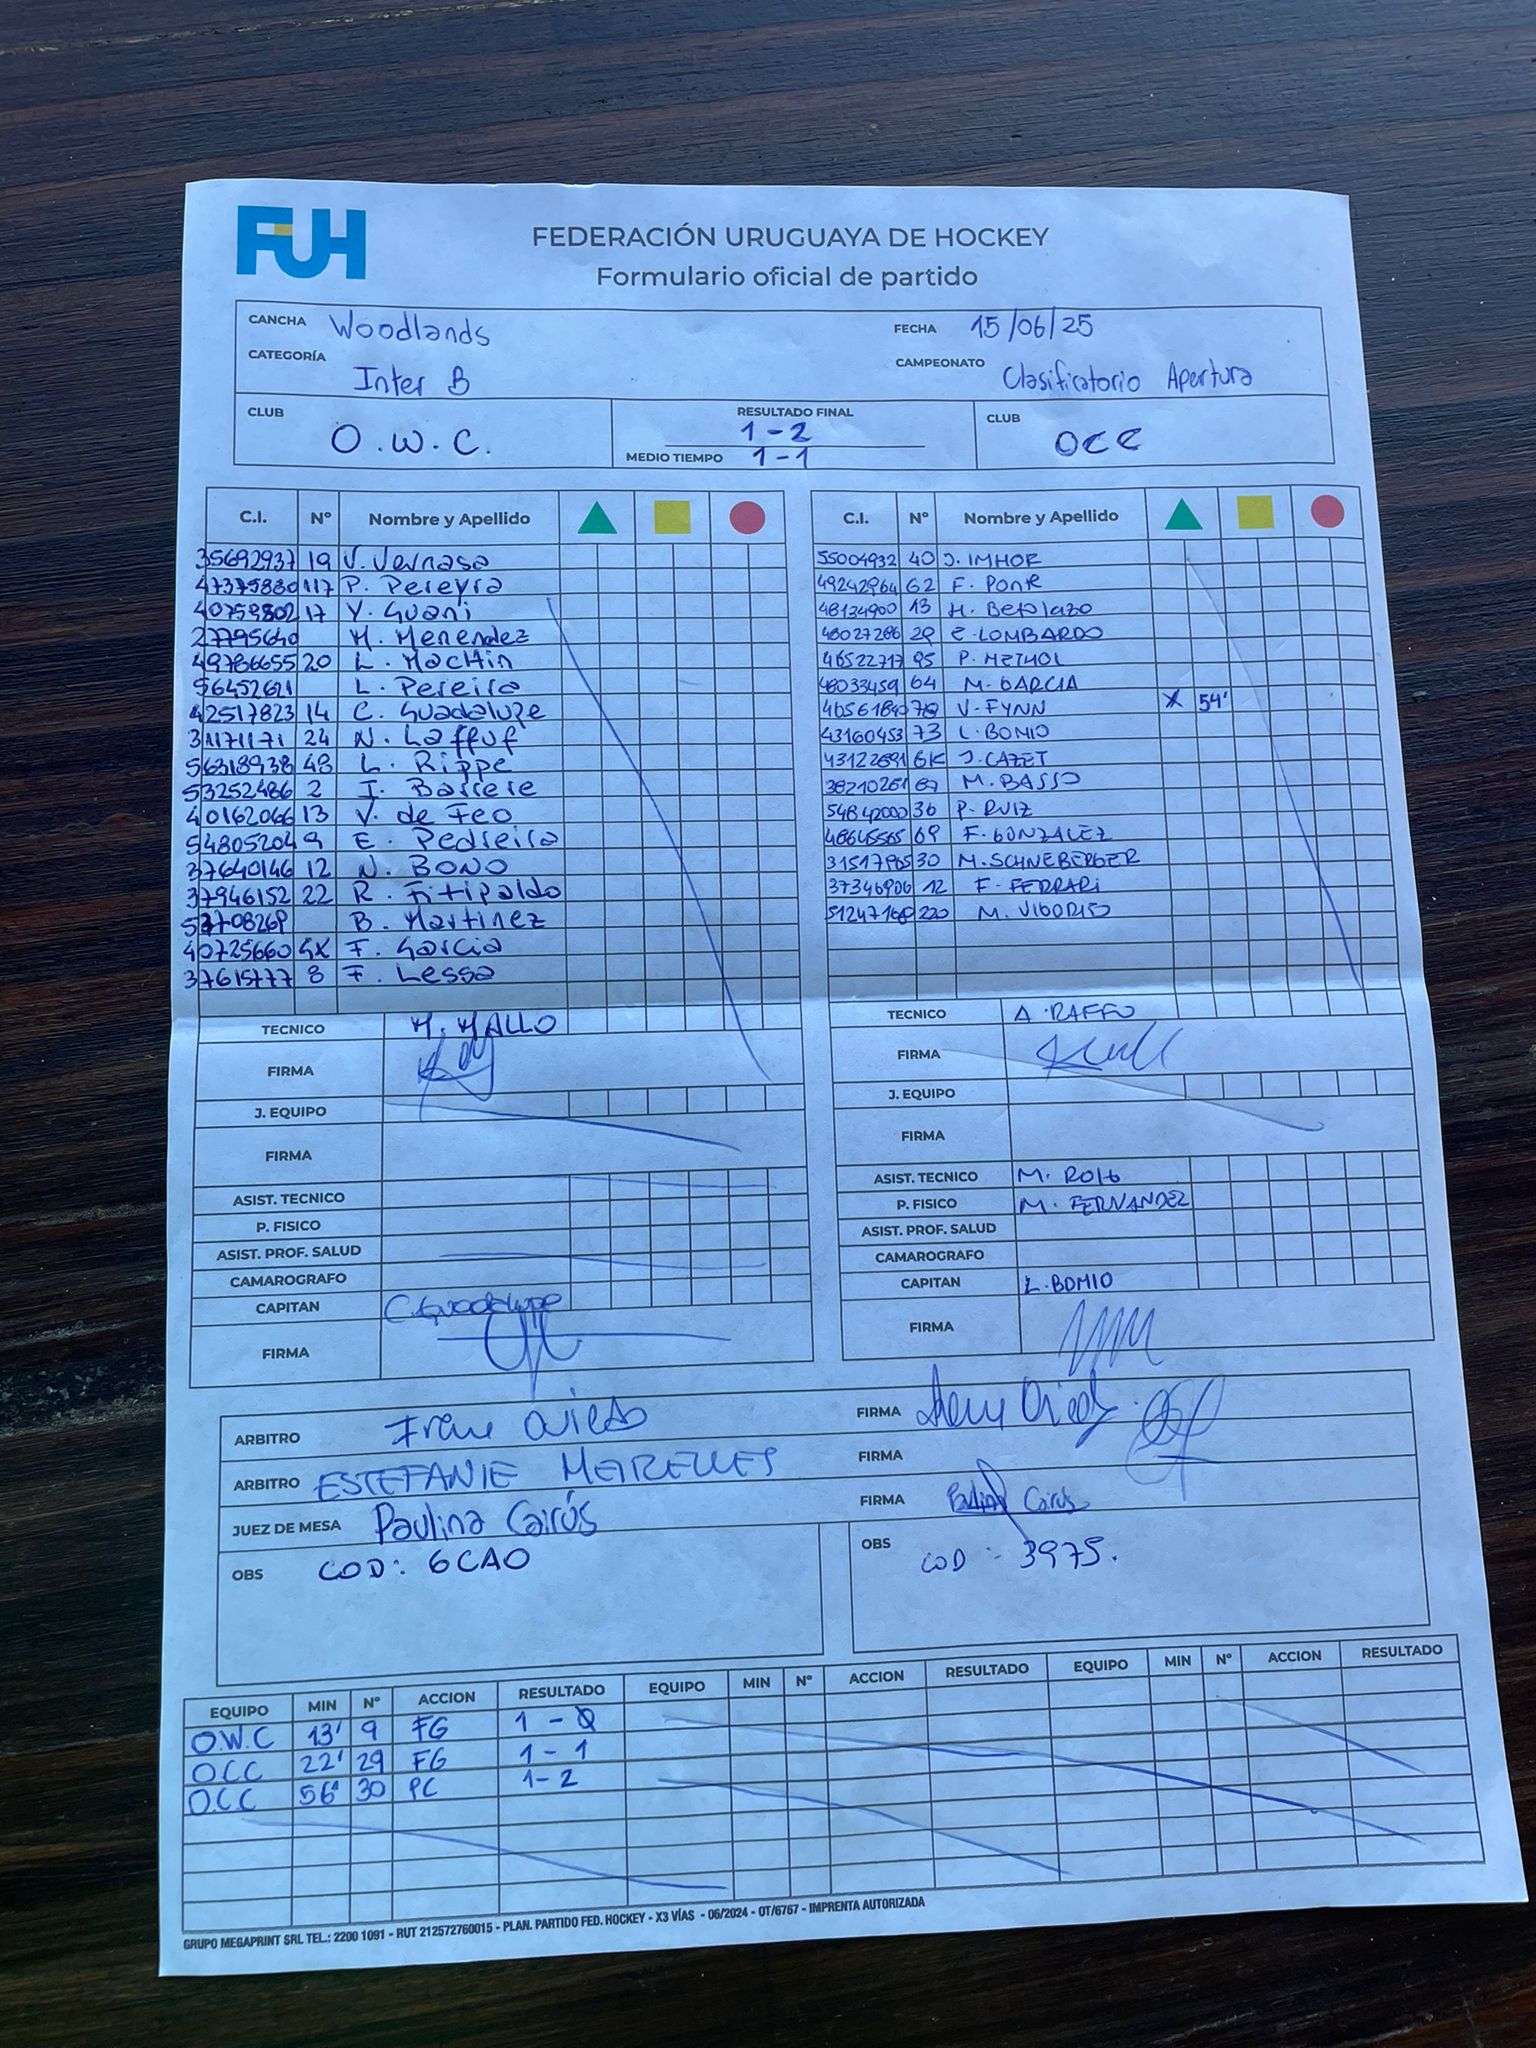 FUH
FEDERACIÓN URUGUAYA DE HOCKEY
Formulario oficial de partido
CANCHA Woodlands FECHA 15/06/25
CATEGORÍA Inter B CAMPEONATO Clasificatorio Apertura
CLUB O.W.C. RESULTADO FINAL 1-2 CLUB OCC
MEDIO TIEMPO 1-1
C.I. Nº Nombre y Apellido
35692937 19 V. Vernasa
47375880 117 P. Pereyra
40759802 17 Y. Guani
27795640 M. Menendez
49786655 20 L. Machin
56452621 L. Pereira
42517823 14 C. Guadalupe
31171171 24 N. Laffuf
56318938 48 L. Rippe
53252486 2 I. Barrere
40162066 13 V. de Feo
54805204 9 E. Pedreira
37640146 12 N. BONO
37946152 22 R. Fitipaldo
53708269 B. Martinez
40725660 GK F. Garcia
37615777 8 F. Lessa
TECNICO M. MALLO
FIRMA
J. EQUIPO
FIRMA
ASIST. TECNICO
P. FISICO
ASIST. PROF. SALUD
CAMAROGRAFO
CAPITAN C. Guadalupe
FIRMA
C.I. Nº Nombre y Apellido
55004932 40 J. IMHOF
49242964 62 F. Ponte
48134900 13 H.
48027286 29 C. LOMBARDO
46522717 95 P. METHOL
48033459 64 M. GARCIA
70 V. FYNN X 54'
43160453 73 L. BOMIO
43122891 GK J. CAZET
38210261 87 M. BASSO
54842000 36 P. RUIZ
48645565 69 F. GONZALEZ
31517965 30 M. SCHNEBERGER
37346906 12 F. FERRARI
51247168 220 M. VIGORITO
TECNICO A. RAFFO
FIRMA
J. EQUIPO
FIRMA
ASIST. TECNICO M.
P. FISICO M. FERNANDEZ
ASIST. PROF. SALUD
CAMAROGRAFO
CAPITAN L. BOMIO
FIRMA
ARBITRO Irene Oviedo FIRMA Irene Oviedo
ARBITRO ESTEFANIE MEIRELLES FIRMA
JUEZ DE MESA Paulina Cairús FIRMA Paulina Cairús
OBS COD: 6CAO OBS COD: 3975.
EQUIPO MIN Nº ACCION RESULTADO EQUIPO MIN Nº ACCION RESULTADO EQUIPO MIN Nº ACCION RESULTADO
O.W.C 13' 9 FG 1 - 0
O.C.C 22' 29 FG 1 - 1
O.C.C 56' 30 PC 1-2
GRUPO MEGAPRINT SRL TEL.: 2200 1091 - RUT 212572760015 - PLAN. PARTIDO FED. HOCKEY - X3 VÍAS - 06/2024 - OT/6767 - IMPRENTA AUTORIZADA